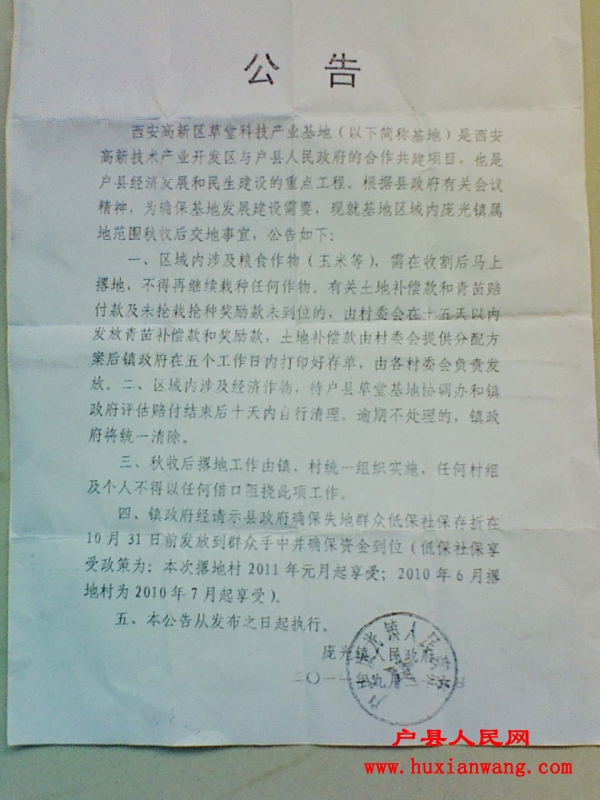 公 告
西安高新区草堂科技产业基地（以下简称基地）是西安
高新技术产业开发区与户县人民政府的合作共建项目，也是
户县经济发展和民生建设的重点工程。根据县政府有关会议
精神，为确保基地发展建设需要，现就基地区域内庞光镇属
地范围秋收后交地事宜，公告如下：
一、区域内涉及粮食作物（玉米等），需在收割后马上
撂地，不得再继续栽种任何作物。有关土地补偿款和青苗赔
付款及未抢栽抢种奖励款未到位的，由村委会在十五天以内
发放青苗补偿款和奖励款，土地补偿款由村委会提供分配方
案后镇政府在五个工作日内打印好存单，由各村委会负责发
放。二、区域内涉及经济作物，待户县草堂基地协调办和镇
政府评估赔付结束后十天内自行清理。逾期不处理的，镇政
府将统一清除。
三、秋收后撂地工作由镇、村统一组织实施，任何村组
及个人不得以任何借口阻挠此项工作。
四、镇政府经请示县政府确保失地群众低保社保存折在
10 月 31 日前发放到群众手中并确保资金到位（低保社保享
受政策为：本次撂地村 2011 年元月起享受；2010 年 6 月撂
地村为 2010 年 7 月起享受）。
五、本公告从发布之日起执行。
庞光镇人民政府
二〇一 年九月二 日
户县人民网
www.huxianwang.com